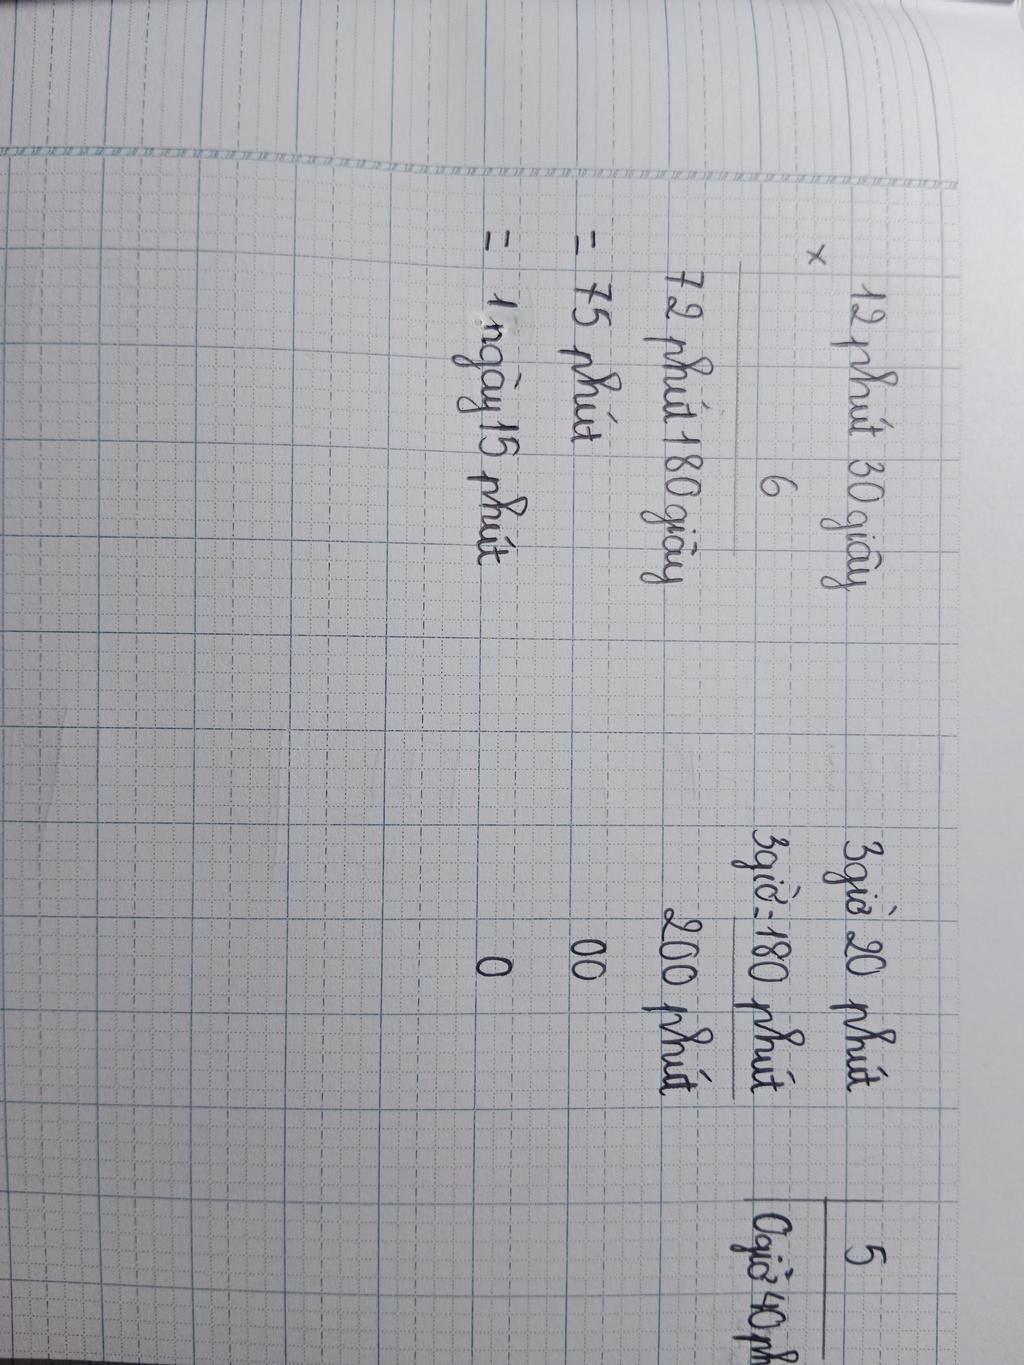 12 phút 30 giây
×
6
72 phút 180 giây
= 75 phút
= 1 ngày 15 phút
3 giờ 20 phút
3 giờ = 180 phút
200 phút
00
0
5
0 giờ 40 ph